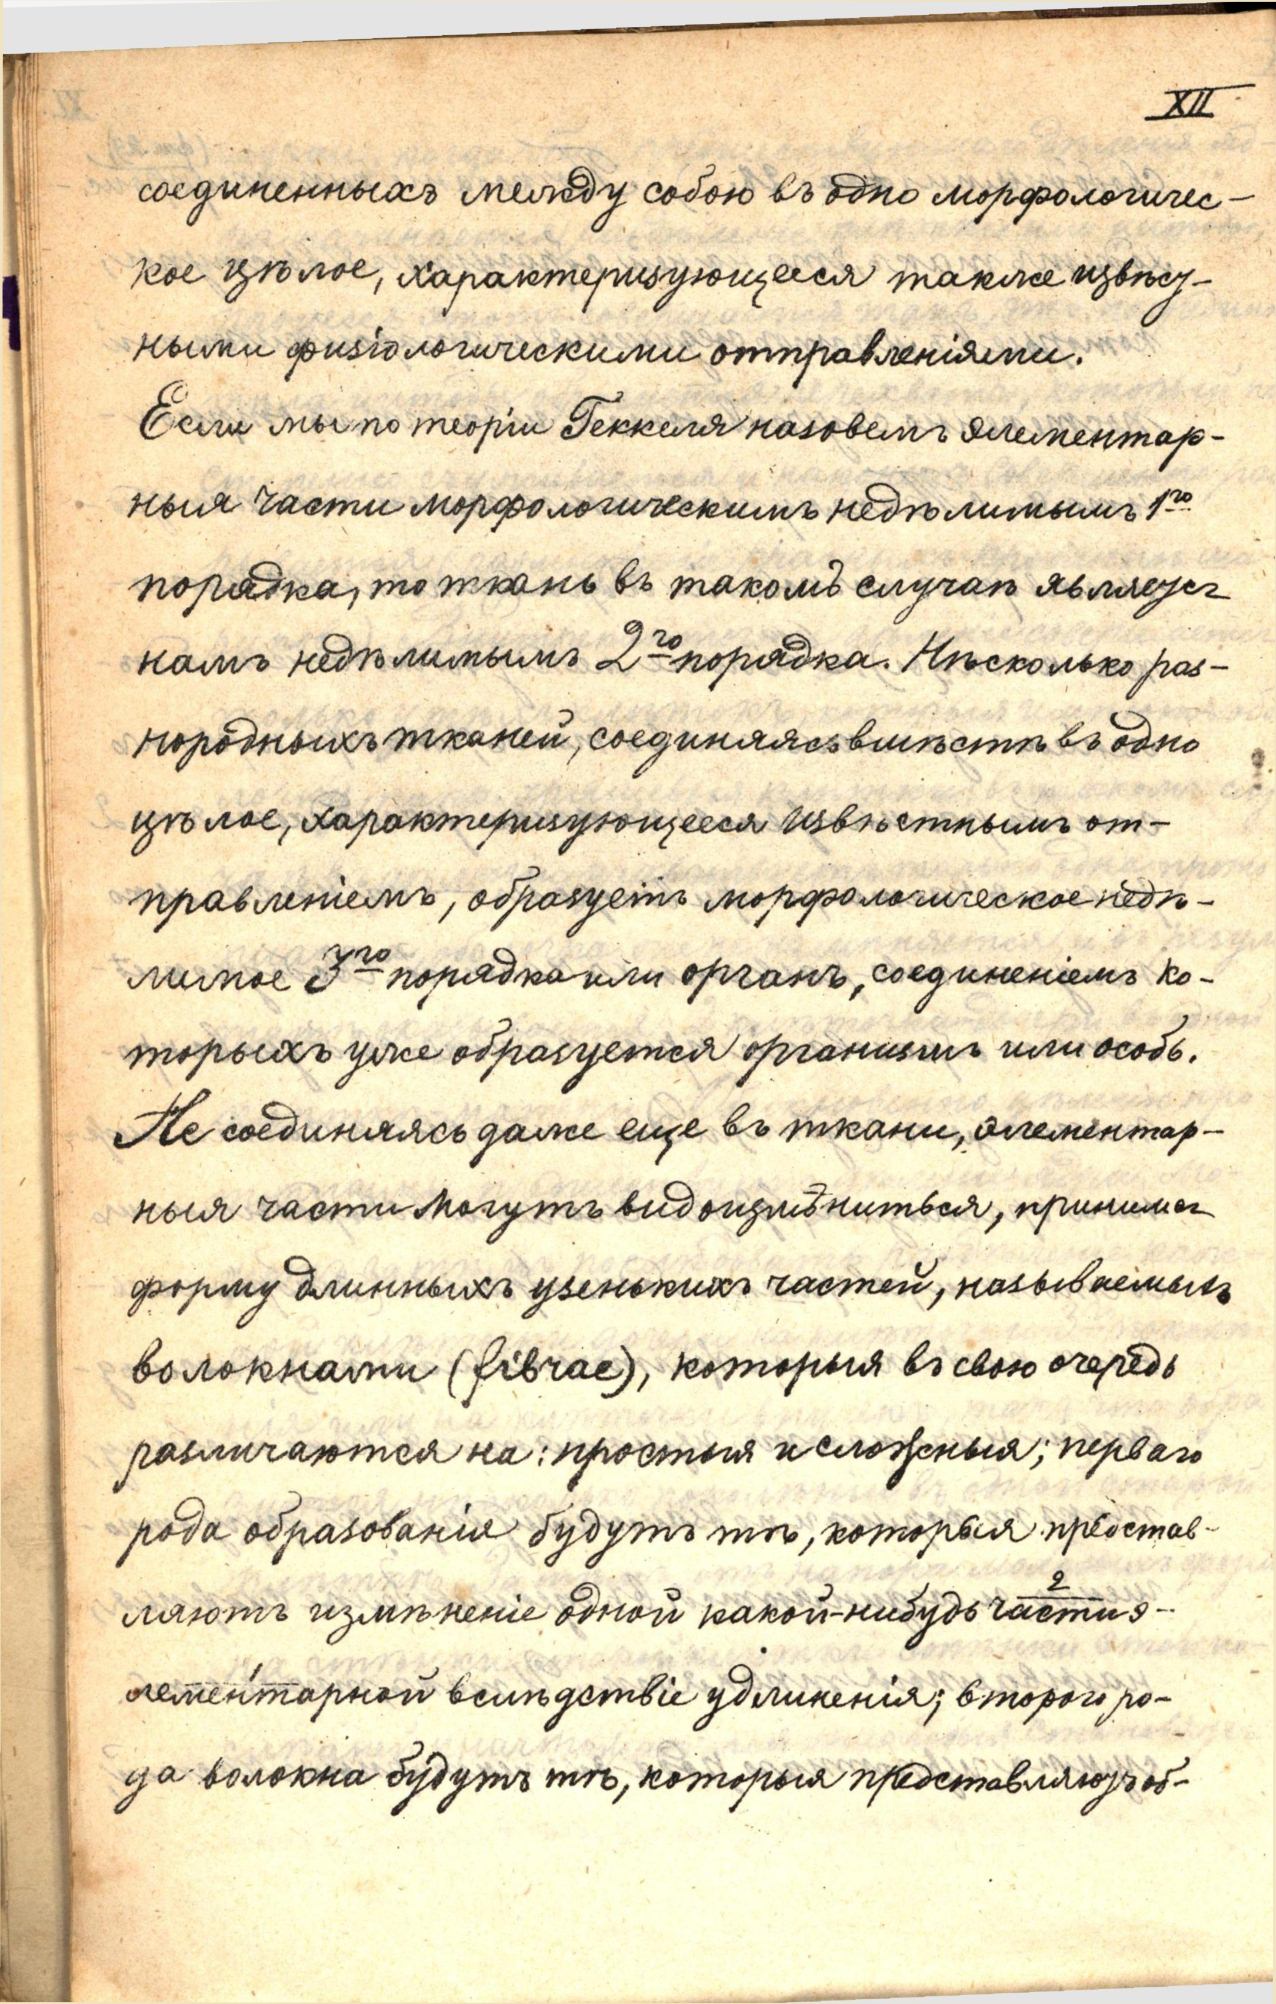 XII
соединенныхъ между собою въ одно морфологичес-
кое цѣлое, характеризующееся также извѣст-
ными физіологическими отправленіями.
Если мы по теоріи Геккеля назовемъ элементар-
ныя части морфологическимъ недѣлимымъ 1го
порядка, то ткань въ такомъ случаѣ является
намъ недѣлимымъ 2го порядка. Нѣсколько раз-
нородныхъ тканей, соединяясь вмѣстѣ въ одно
цѣлое, характеризующееся извѣстнымъ от-
правленіемъ, образуетъ морфологическое недѣ-
лимое 3го порядка или органъ, соединеніемъ ко-
торыхъ уже образуется организмъ или особь.
Не соединяясь даже еще въ ткани, элементар-
ныя части могутъ видоизмѣниться, принимая
форму длинныхъ узенькихъ частей, называемыхъ
волокнами (fibrae), которыя въ свою очередь
различаются на: простыя и сложныя; перваго
рода образованія будутъ тѣ, которыя представ-
ляютъ измѣненіе одной какой-нибудь 2 части э-
лементарной вслѣдствіе удлиненія; второго ро-
да волокна будутъ тѣ, которыя представляютъ об-